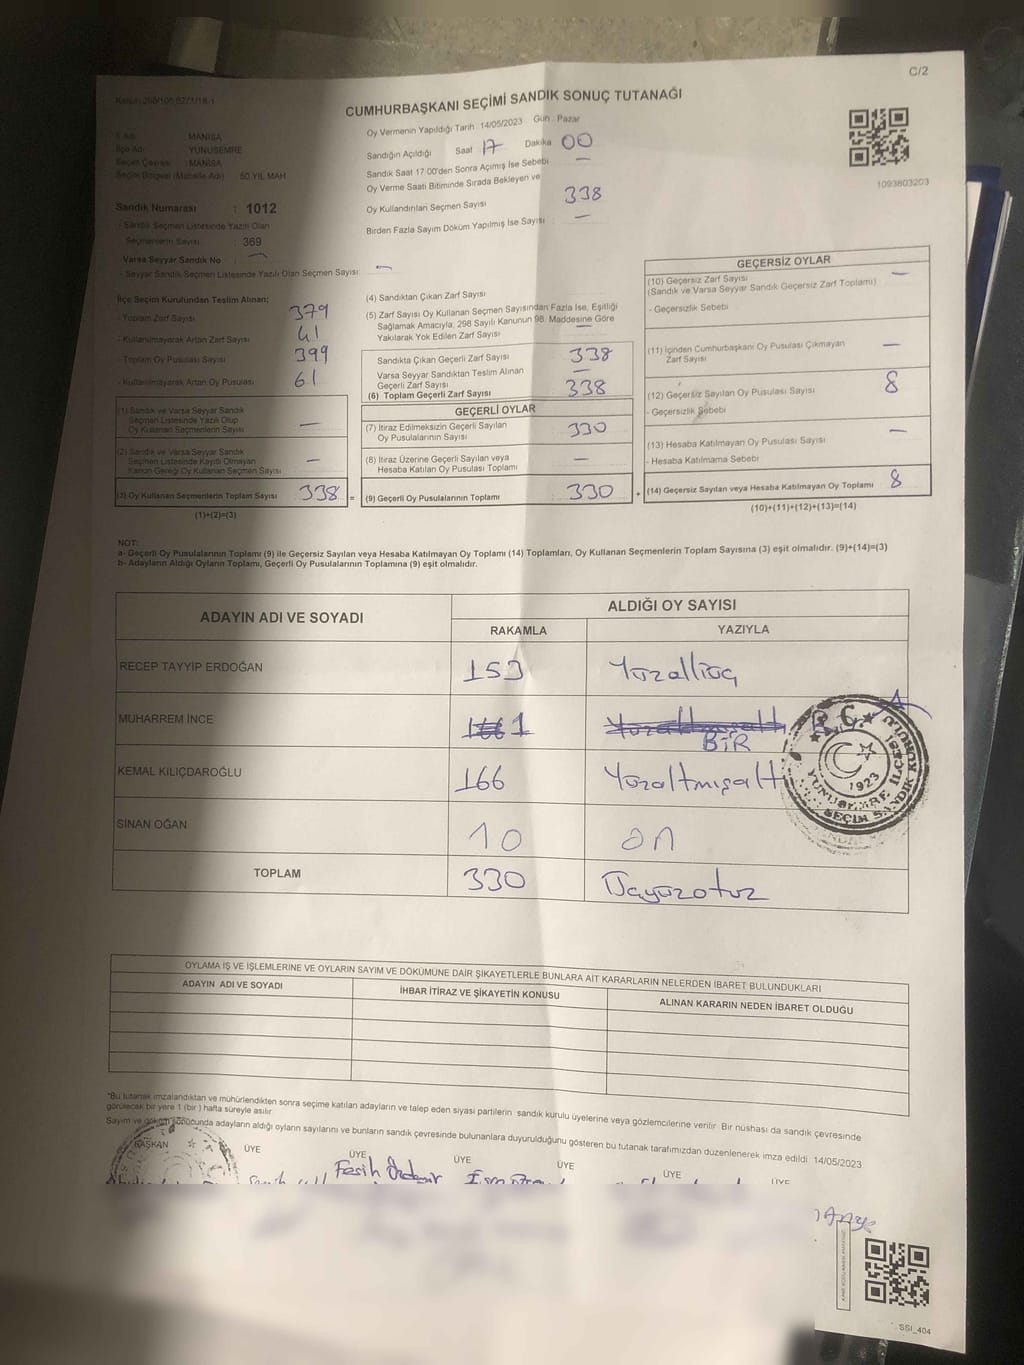 C/2
CUMHURBAŞKANI SEÇİMİ SANDIK SONUÇ TUTANAĞI
İl Adı : MANİSA
İlçe Adı : YUNUSEMRE
Seçim Çevresi : MANİSA
Seçim Bölgesi (Mahalle Adı) 50.YIL MAH
Sandık Numarası : 1012
- Sandık Seçmen Listesinde Yazılı Olan
Seçmenlerin Sayısı : 369
Varsa Seyyar Sandık No —
- Seyyar Sandık Seçmen Listesinde Yazılı Olan Seçmen Sayısı: —
Oy Vermenin Yapıldığı Tarih : 14/05/2023 Gün : Pazar
Sandığın Açıldığı Saat 17 Dakika 00
Sandık Saat 17:00'den Sonra Açımış İse Sebebi —
Oy Verme Saati Bitiminde Sırada Bekleyen ve
Oy Kullandırılan Seçmen Sayısı 338
Birden Fazla Sayım Döküm Yapılmış İse Sayısı —
1093803203
İlçe Seçim Kurulundan Teslim Alınan;
- Toplam Zarf Sayısı 379
- Kullanılmayarak Artan Zarf Sayısı 41
- Toplam Oy Pusulası Sayısı 399
- Kullanılmayarak Artan Oy Pusulası 61
(1) Sandık ve Varsa Seyyar Sandık
Seçmen Listesinde Yazılı Olup
Oy Kullanan Seçmenlerin Sayısı —
(2) Sandık ve Varsa Seyyar Sandık
Seçmen Listesinde Kayıtlı Olmayan
Kanun Gereği Oy Kullanan Seçmen Sayısı —
(3) Oy Kullanan Seçmenlerin Toplam Sayısı 338 =
(1)+(2)=(3)
(4) Sandıktan Çıkan Zarf Sayısı
(5) Zarf Sayısı Oy Kullanan Seçmen Sayısından Fazla İse, Eşitliği
Sağlamak Amacıyla, 298 Sayılı Kanunun 98. Maddesine Göre
Yakılarak Yok Edilen Zarf Sayısı —
Sandıkta Çıkan Geçerli Zarf Sayısı 338
Varsa Seyyar Sandıktan Teslim Alınan
Geçerli Zarf Sayısı —
(6) Toplam Geçerli Zarf Sayısı 338
GEÇERLİ OYLAR
(7) İtiraz Edilmeksizin Geçerli Sayılan
Oy Pusulalarının Sayısı 330
(8) İtiraz Üzerine Geçerli Sayılan veya
Hesaba Katılan Oy Pusulası Toplamı —
(9) Geçerli Oy Pusulalarının Toplamı 330 +
GEÇERSİZ OYLAR
(10) Geçersiz Zarf Sayısı —
(Sandık ve Varsa Seyyar Sandık Geçersiz Zarf Toplamı)
- Geçersizlik Sebebi
(11) İçinden Cumhurbaşkanı Oy Pusulası Çıkmayan
Zarf Sayısı —
(12) Geçersiz Sayılan Oy Pusulası Sayısı 8
- Geçersizlik Sebebi
(13) Hesaba Katılmayan Oy Pusulası Sayısı —
- Hesaba Katılmama Sebebi
(14) Geçersiz Sayılan veya Hesaba Katılmayan Oy Toplamı 8
(10)+(11)+(12)+(13)=(14)
NOT:
a- Geçerli Oy Pusulalarının Toplamı (9) ile Geçersiz Sayılan veya Hesaba Katılmayan Oy Toplamı (14) Toplamları, Oy Kullanan Seçmenlerin Toplam Sayısına (3) eşit olmalıdır. (9)+(14)=(3)
b- Adayların Aldığı Oyların Toplamı, Geçerli Oy Pusulalarının Toplamına (9) eşit olmalıdır.
ADAYIN ADI VE SOYADI
ALDIĞI OY SAYISI
RAKAMLA YAZIYLA
RECEP TAYYİP ERDOĞAN 153 Yüzelliüç
MUHARREM İNCE 1 BİR
KEMAL KILIÇDAROĞLU 166 Yüzaltmışaltı
SİNAN OĞAN 10 on
TOPLAM 330 Üçyüzotuz
T.C.
1923
YUNUSEMRE İLÇESİ
SEÇİM SANDIK KURULU
OYLAMA İŞ VE İŞLEMLERİNE VE OYLARIN SAYIM VE DÖKÜMÜNE DAİR ŞİKAYETLERLE BUNLARA AİT KARARLARIN NELERDEN İBARET BULUNDUKLARI
ADAYIN ADI VE SOYADI İHBAR İTİRAZ VE ŞİKAYETİN KONUSU ALINAN KARARIN NEDEN İBARET OLDUĞU
*Bu tutanak imzalandıktan ve mühürlendikten sonra seçime katılan adayların ve talep eden siyasi partilerin sandık kurulu üyelerine veya gözlemcilerine verilir. Bir nüshası da sandık çevresinde
görülecek bir yere 1 (bir) hafta süreyle asılır.
Sayım ve döküm sonucunda adayların aldığı oyların sayılarını ve bunların sandık çevresinde bulunanlara duyurulduğunu gösteren bu tutanak tarafımızdan düzenlenerek imza edildi. 14/05/2023
BAŞKAN ÜYE ÜYE ÜYE ÜYE ÜYE ÜYE
Fesih Özdemir
SSI_404